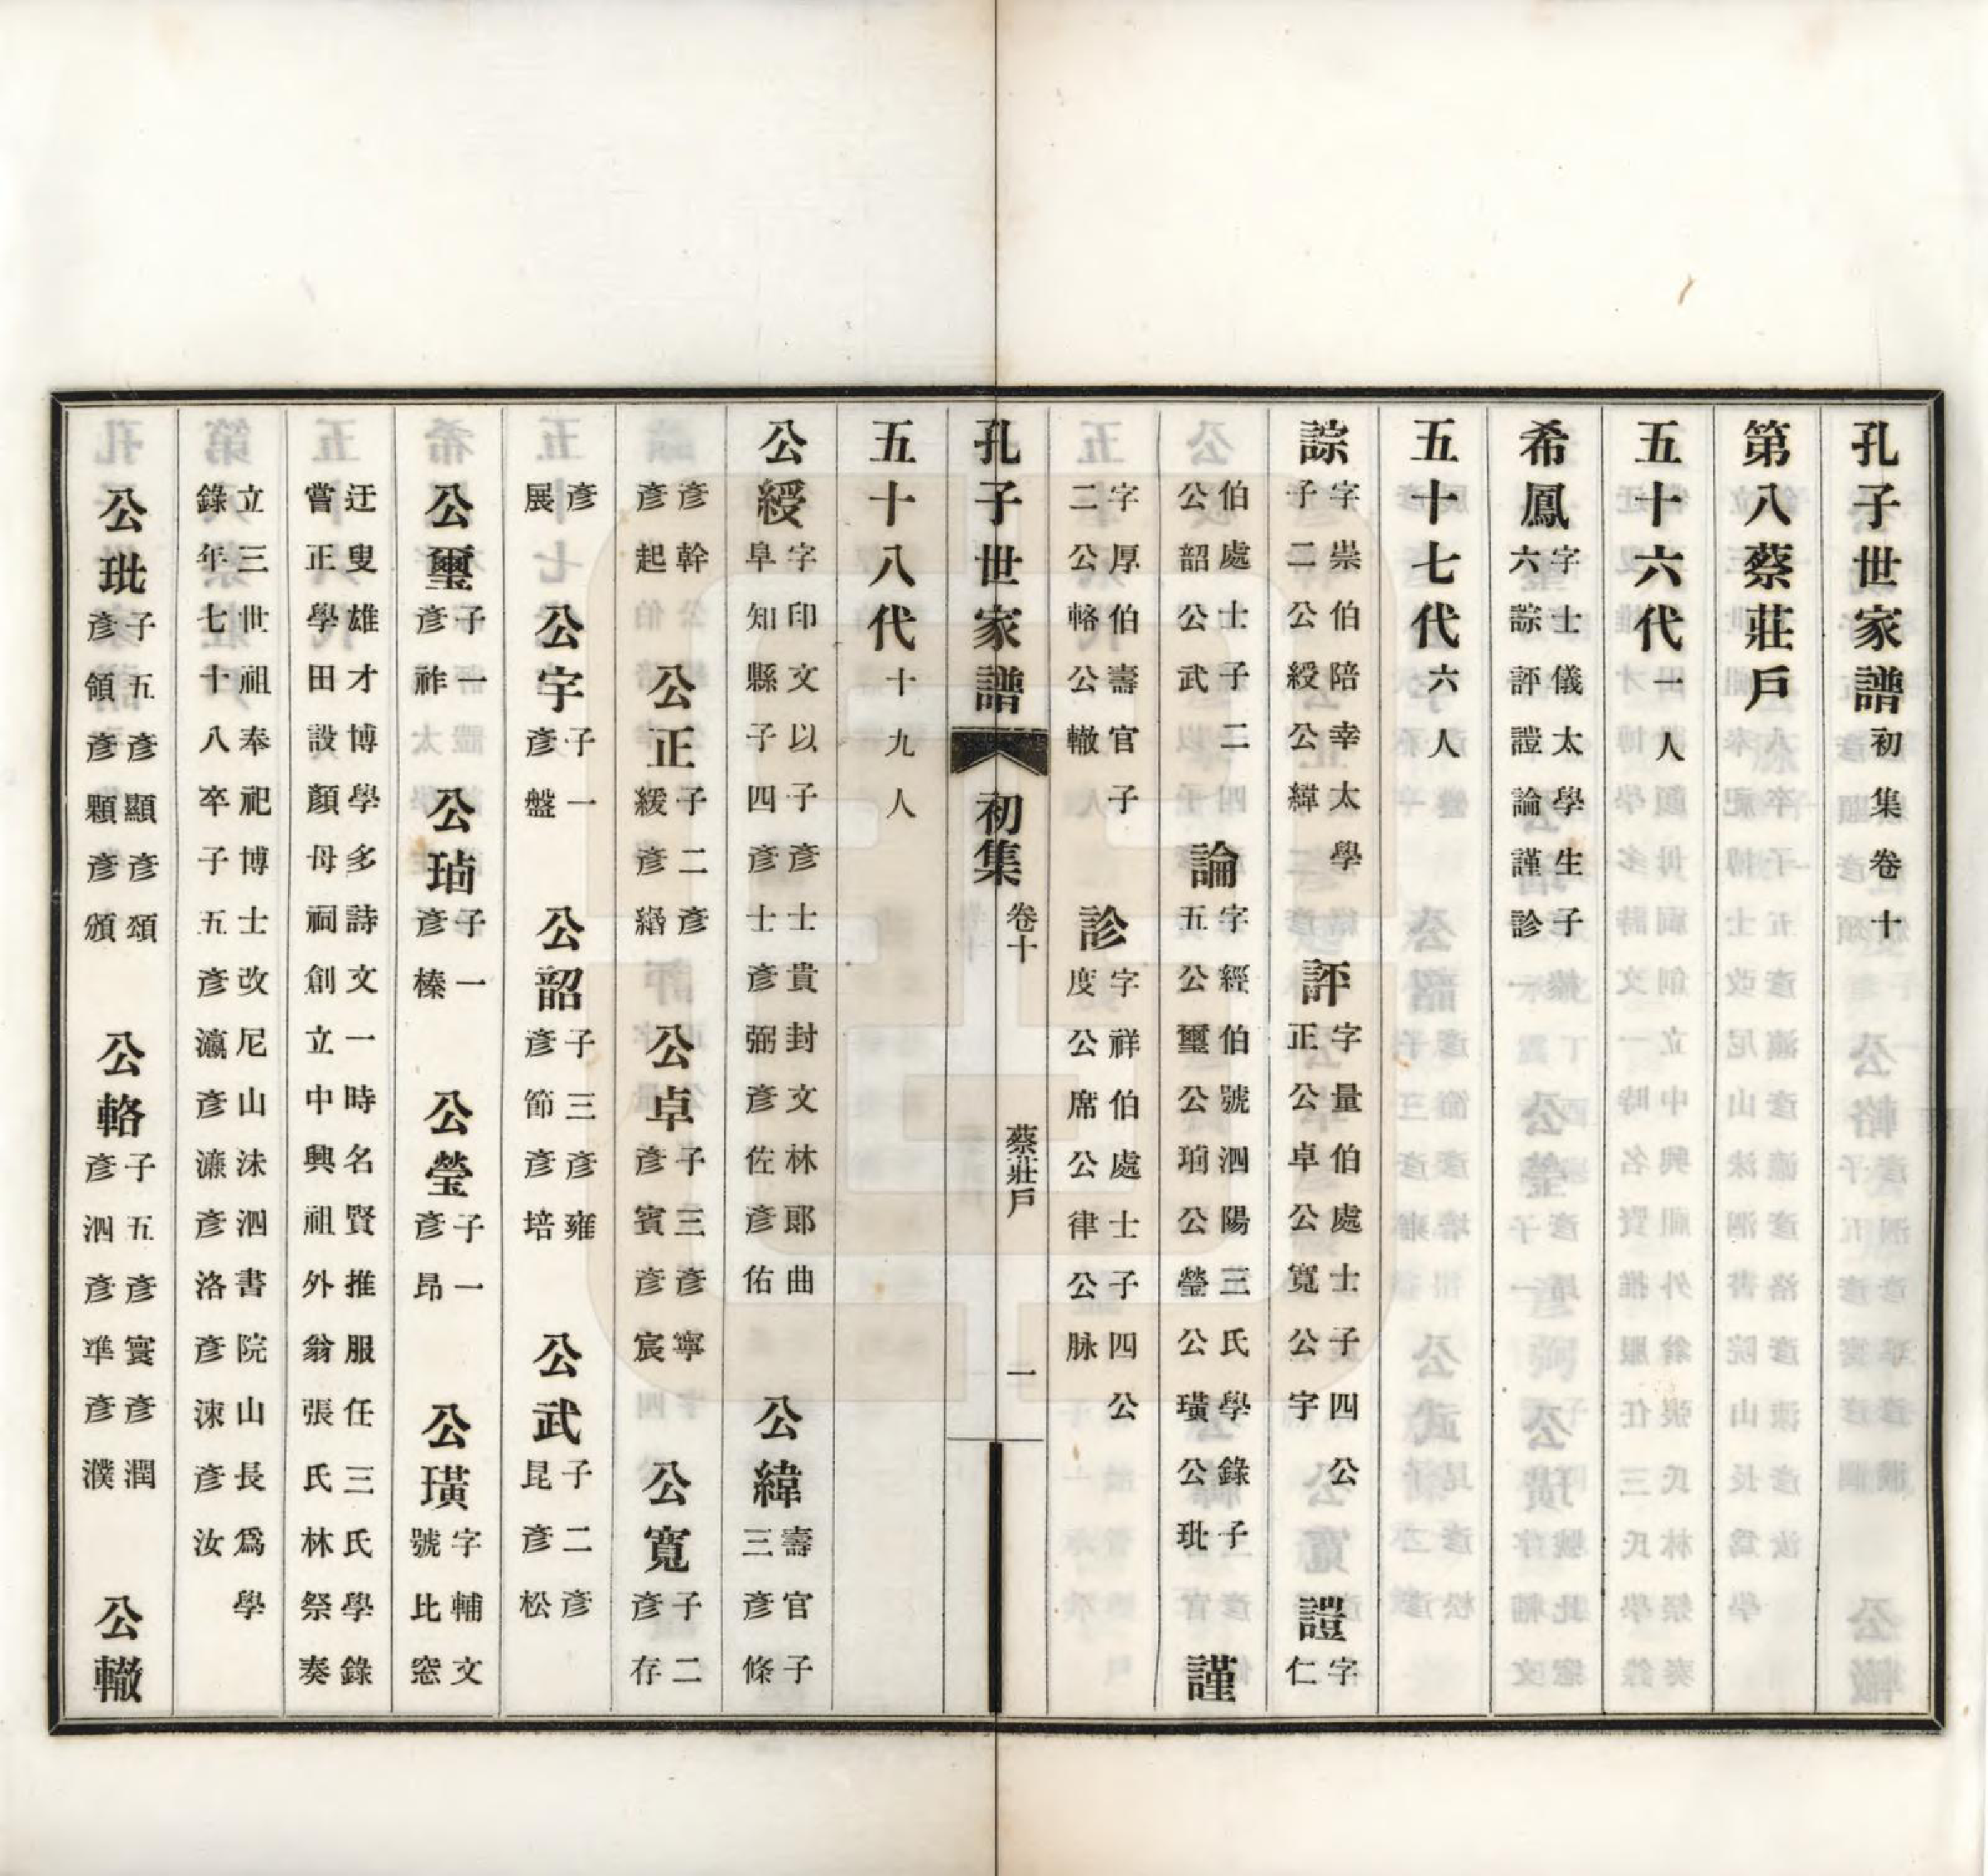 孔子世家譜初集卷十
第八蔡莊戶
五十六代一人
希鳳字士儀太學生子六諒評諠論謹診
五十七代六人
諒字崇伯陪幸太學子二公綬公緯 評字量伯處士子四公正公卓公寬公宇 諠字仁
伯處士子二公韶公武 論字經伯號泗陽三氏學錄子五公璽公瑣公瑩公璜公玭 謹
字厚伯壽官子二公輅公轍 診字祥伯處士子四公度公席公律公脉
孔子世家譜 初集 卷十 蔡莊戶 一
五十八代十九人
公綬字印文以子彥士貴封文林郎曲阜知縣子四彥士彥弼彥佐彥佑 公緯壽官子三彥條
彥幹彥起 公正子二彥緩彥緡 公卓子三彥寧彥賓彥宸 公寬子二彥存
彥展 公宇子一彥盤 公韶子三彥雍彥節彥培 公武子二彥昆彥松
公璽子一彥祚 公瑣子一彥榛 公瑩子一彥昂 公璜字輔文號比窓
迂叟雄才博學多詩文一時名賢推服任三氏學錄嘗正學田設顏母祠創立中興祖外翁張氏林祭奏
立三世祖奉祀博士改尼山洙泗書院山長爲學錄年七十八卒子五彥瀛彥濂彥洛彥涑彥汝
公玭子五彥顯彥頌彥領彥顆彥頒 公輅子五彥寰彥潤彥泗彥準彥濮 公轍